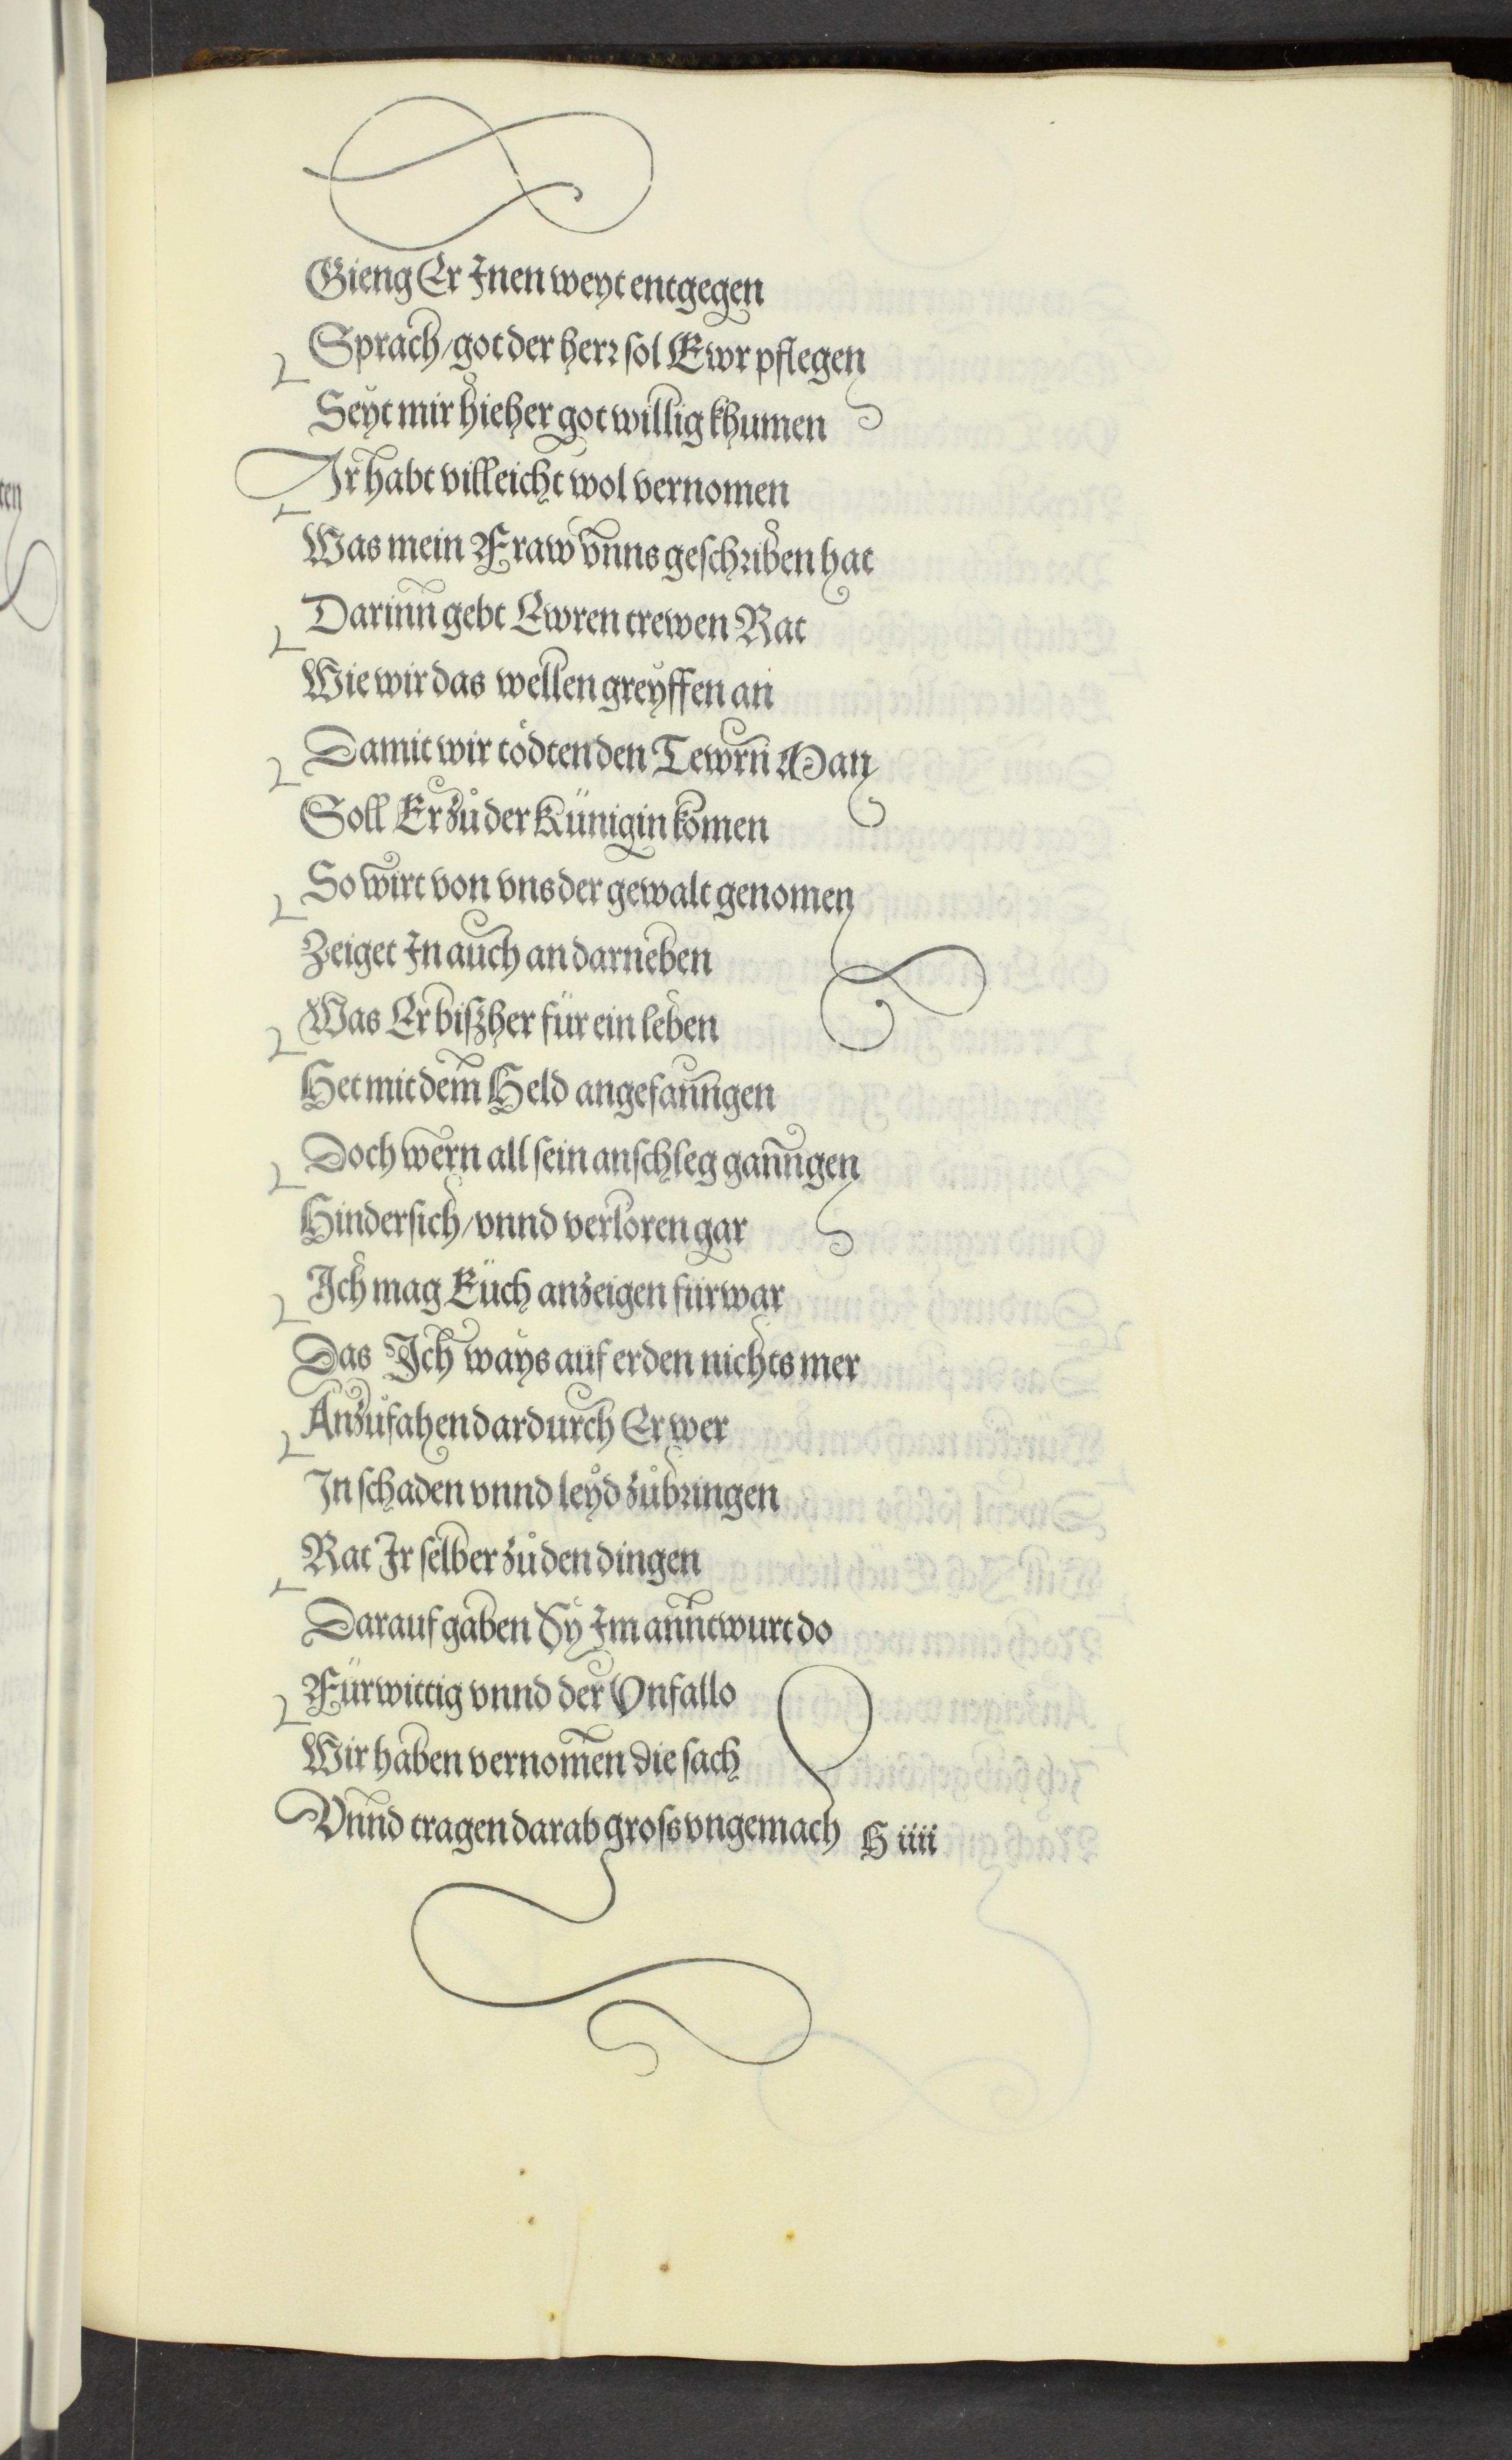 Gieng Er Inen weyt entgegen
Sprach/got der herr sol Ewr pflegen
Seyt mir hieher got willig khumen
Ir habt villeicht wol vernomen
Was mein Fraw vnns geschriben hat
Darinn gebt Ewren trewen Rat
Wie wir das wellen greyffen an
Damit wir tödten den Tewrn Man
Soll Er zů der Künigin komen
So wirt von vns der gewalt genomen
Zeiget In auch an darneben
Was Er biszher für ein leben
Het mit dem Held angefanngen
Doch wern all sein anschleg ganngen
Hindersich/vnnd verloren gar
Ich mag Euch anzeigen fürwar
Das Ich ways auf erden nichts mer
Anzůfahen dardurch Er wer
In schaden vnnd leyd zůbringen
Rat Ir selber zů den dingen
Darauf gaben Sy Im anntwurt do
Fürwittig vnnd der Vnfallo
Wir haben vernomen die sach
Vnnd tragen darab gross vngemach
H iiii